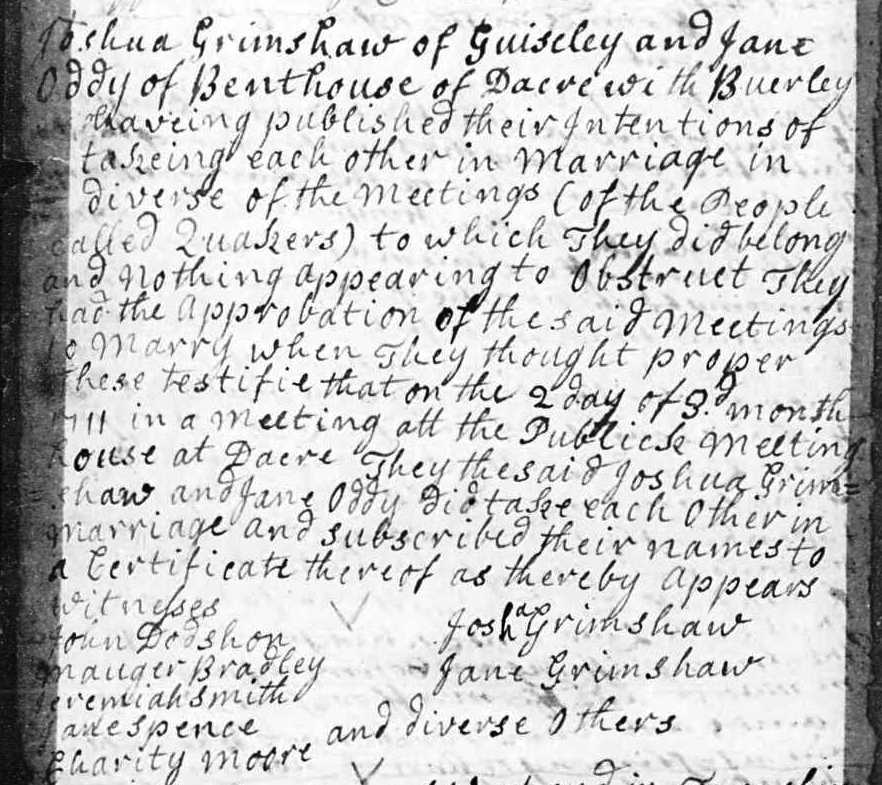 Joshua Grimshaw of Guiseley and Jane
Oddy of Benthouse of Dacre with Buerley
haveing published their Intentions of
takeing each other in Marriage in
diverse of the Meetings (of the People
called Quakers) to which They did belong
and Nothing appearing to Obstruct They
had the Approbation of the said Meetings
to Marry when They thought proper
these testifie that on the 2 day of 3.d month
1711 in a Meeting att the Publick Meeting
house at Dacre They the said Joshua Grim=
=shaw and Jane Oddy did take each Other in
Marriage and subscribed their names to
a Certificate thereof as thereby Appears
Witnesses
John Dodshon Josha Grimshaw
Mauger Bradley Jane Grimshaw
Jeremiah Smith
Jane Spence and diverse Others
Charity Moore